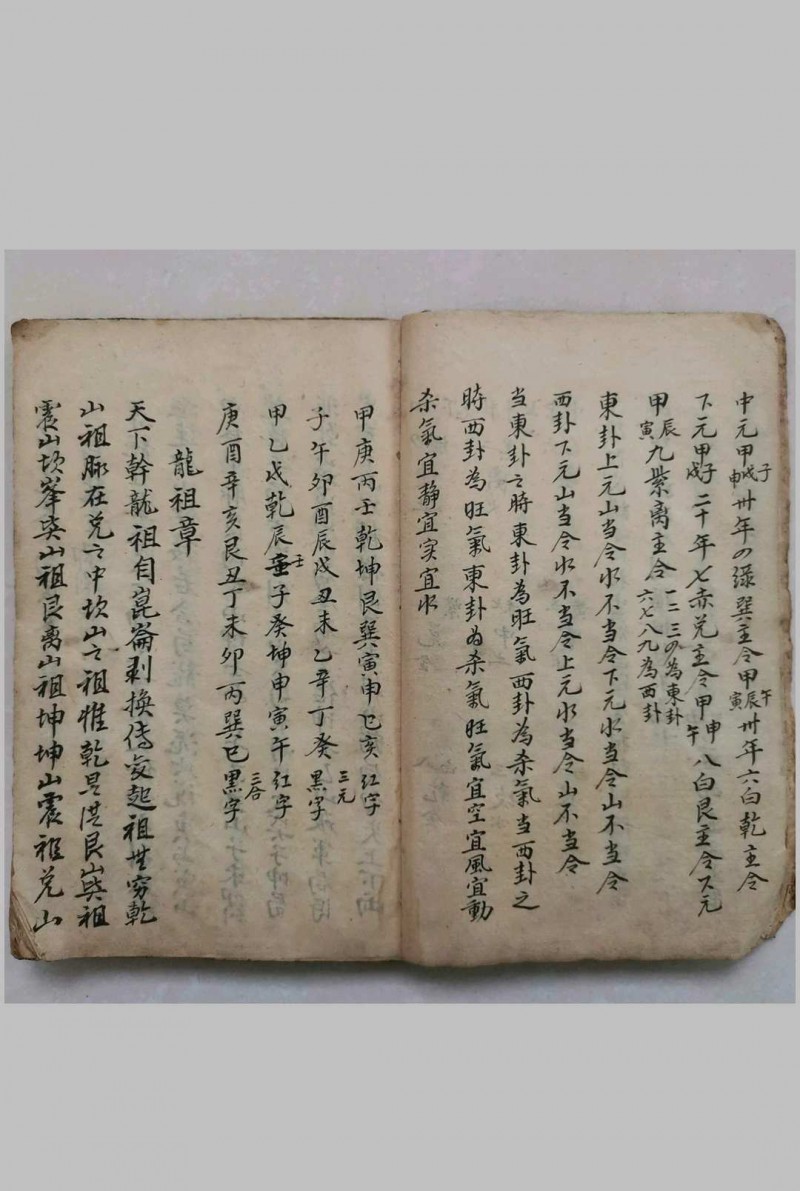 中元甲子戌申卅年四綠巽主令甲午辰寅卅年六白乾主令
下元甲子戌二十年七赤兌主令甲申午八白艮主令下元
甲辰寅九紫离主令一二三四為東卦六七八九為西卦
東卦上元山当令水不当令下元水当令山不当令
西卦下元山当令水不当令上元水当令山不当令
当東卦之時東卦為旺氣西卦為杀氣当西卦之
時西卦為旺氣東卦为杀氣旺氣宜空宜風宜動
杀氣宜静宜实宜水
甲庚丙壬乾坤艮巽寅申巳亥红字
子午卯酉辰戌丑未乙辛丁癸黑字三元
甲乙戌乾辰壬子癸坤申寅午红字
庚酉辛亥艮丑丁未卯丙巽巳黑字三合
龍祖章
天下幹龍祖自崑崙剥換傳变起祖世穷乾
山祖脉在兌之中坎山之祖惟乾是洪艮山巽祖
震山坎峯巽山祖艮离山祖坤坤山震祖兌山